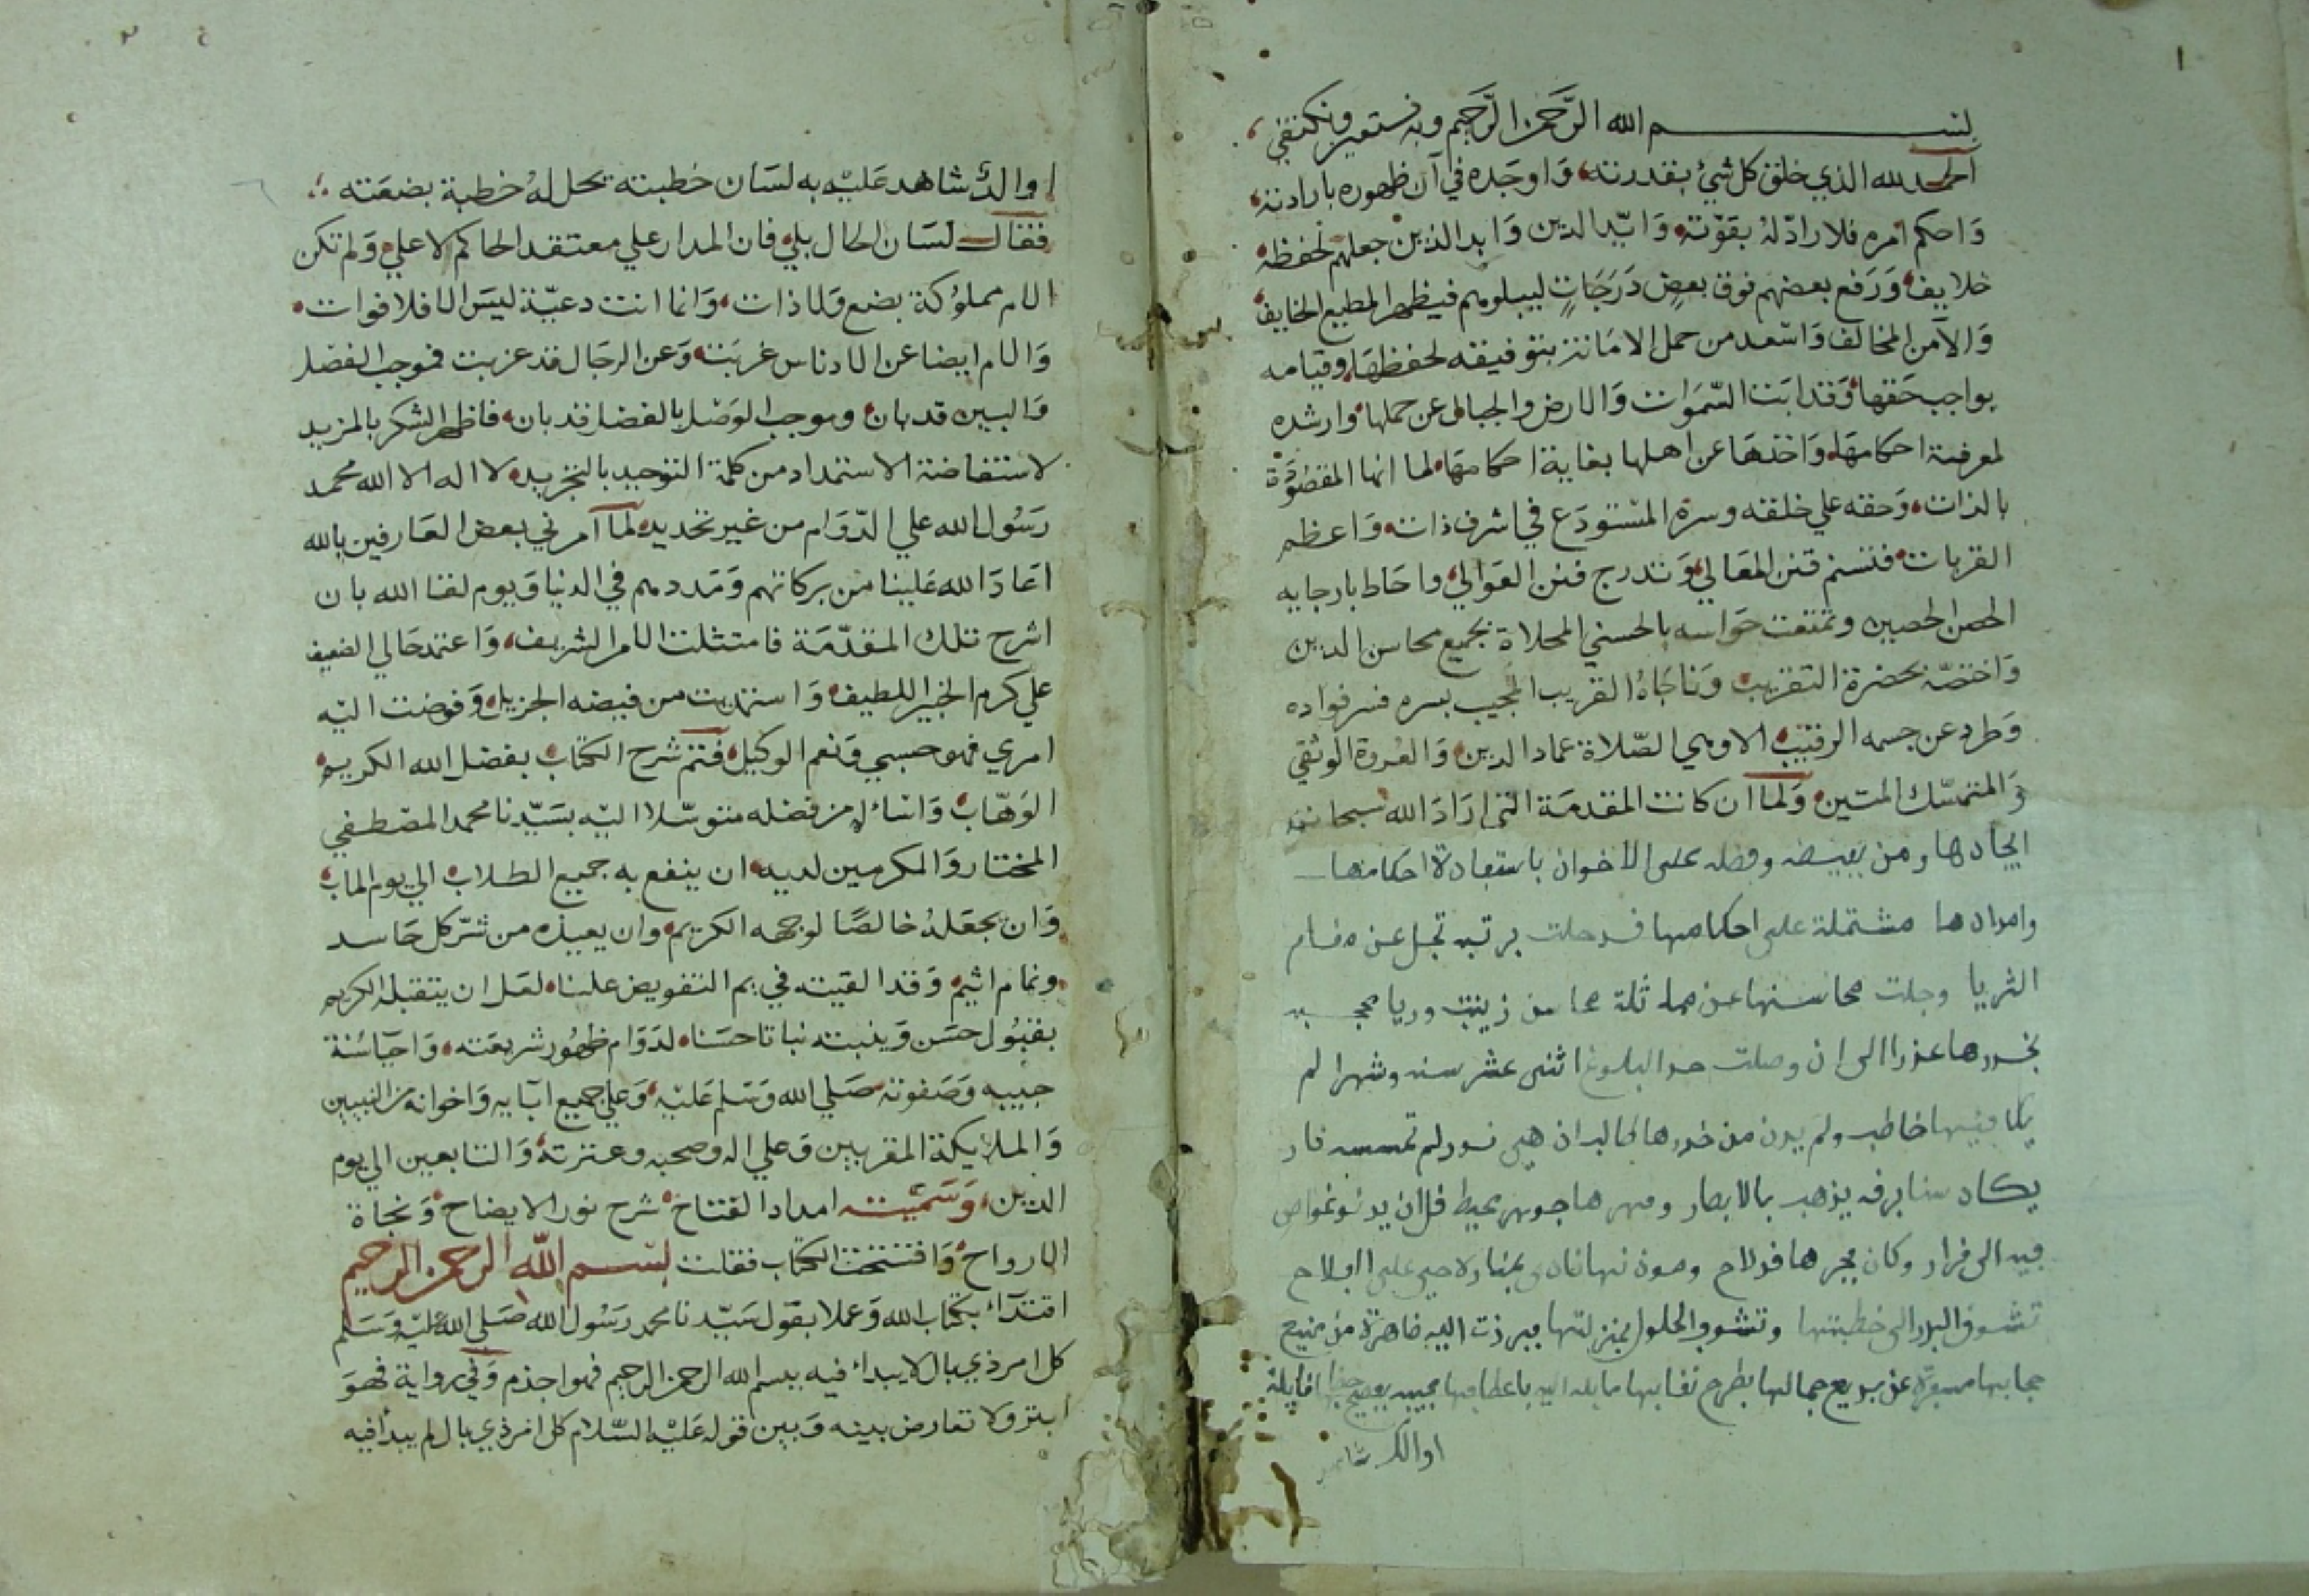 ١
بسم الله الرَّحمن الرَّحيم وبه نستعين ونكتفي
الحمد لله الذي خلق كل شيء بقدرته، وَاوجَده في آن ظهوره بارادته
وَاحكم امره فلا رادّ لهُ بقوّته، وَايّد الدين وَابد الذين جعلهم لحفظه
خلايف، وَرَفع بعضهم فوق بعضٍ دَرَجَاتٍ ليبلوهم فيظهر المطيع الخايف
وَالآمن المخالف وَاسْعد من حمل الامَانة بتوفيقه لحفظهَا، وقيامه
بواجب حَقها، وَقد ابَت السّمَوات وَالارض والجبال عن حملها، وارشده
لمعرفة احكامهَا، وَاخذهَا عن اهلها بغاية احكامهَا، لما انها المقصُوَدة
بالذات، وَحقه علي خلقه وسره المسْتودَع في اشرف ذات، وَاعظم
القربات، فتسنم قنن المعَالي، وَتدرج فنن العَوالي، واحَاط بارجايه
الحصن الحصين وتمتعت حَواسه بالحسني المحلاة بجميع محاسن الدين
وَاختصّه بحضرة التقريب، وَنَاجَاهُ القريب المجيب بسره فسر فواده
وَطرد عن جسمه الرقيب، الا وهي الصّلاة عماد الدين، وَالعُروة الوثقي
وَالمتمسّك المتين، وَلما ان كانت المقدمَة التي ارَادَ الله سبحانه
ايجادها ومن بفيضه وفضله على الاخوان باستفادة احكامها
وامدادها مشتملة على احكامها قد حلت برتبه تجل عن مقام
الثريا وجلت محاسنها عن مماثلة محاسن زينب وريا محجبه
بخدرها عذرا الى ان وصلت حد البلوغ اثنى عشر سنه وشهرا لم
يكافيها خاطب ولم يدن من خدرها لجالبدان هي نور لم تمسسه نار
يكاد سنا برقه يذهب بالابصار ومهرها جوهر بمحيط قل ان يدنو غواص
فيه الى قرار وكان فجرها قد لاح وصون نهانادى بمنار لاحي على الفلاح
تشوف البدر الى خطبتها وتشوف الحلول بمنزلتها فبرزت اليه ظاهرة من منيع
حجابها مسفرة عن بديع جمالها بطرح نقابها مايله اليه باعطافها مجيبه بفصيح خطابها قايلة
اوالك شاهد
اوالك شاهد عَليْه به لسَان خطبته تحل لهُ خطبة بضعَته
فقال لسَان الحال بلي، فان المدار علي معتقد الحاكم لا علي، وَلم تكن
الام مملوُكة بضع وَلا ذات، وَانما انت دعيّة ليسَ الا فلا فوات
وَالام ايضا عن الادناس غربَت، وَعن الرجَال قد عزبت فموجب الفضل
وَالبين قد بهان، وموجب الوَصْل بالفضل قد بان، فاظهر الشكر بالمزيد
لاستفاضة الاستمداد من كلمة التوحيد بالتجريد، لا اله الا الله محمد
رَسُول الله علي الدّوَام من غير تحديد، لما آمرني بعض العَارفين بالله
اعَادَ الله عَلينا من بركاتهم وَمَددهم في الدنيا وَيوم لقا الله بان
اشرح تلك المقدّمَة فامتثلت الامر الشريف، وَاعتمد حَالي الضعيف
علي كرم الخبير اللطيف، وَاستمديت من فيضه الجزيل، وَفوضت اليْه
امري فهو حسبي وَنعم الوكيل، فتم شرح الكتاب بفضل الله الكريم
الوَهّاب، وَاسْاله من فضله متوسّلا اليْه بسَيّدنا محمد المصْطفي
المختار وَالمكرمين لديه، ان ينفع به جميع الطلاب الي يوم الماب
وَان يجعَلهُ خالصًا لوجهه الكريم، وان يعيذه من شرّ كل حَاسد
ونمام اثيم، وَقد القيته في يم التفويض علنا، لعَل ان يتقبله الكريم
بقبُول حسَن وَينبته نباتا حسَنا، لدَوَام ظهُور شريعَته، وَاحيَا سُنة
حبيبه وَصَفوته صَلي الله وَسَلم عَليْه، وَعلي جميع ابَايه وَاخوانه من النبيين
وَالملايكة المقربين وَعلي اله وصحبه وعترته، وَالتابعين الي يوم
الدين، وَسَميْته امداد الفتاح، شرح نور الايضاح، وَنجاة
الارواح، وَافتتحت الكتاب فقلت بسم الله الرحمن الرحيم
اقتدَاء بكتاب الله وَعملا بقول سَيّدنا محمد رَسُول الله صَلي الله عليْه وَسَلم
كل امر ذي بال لا يبداء فيه ببسم الله الرحمن الرحيم فهو اجذم وَفي رواية فهوَ
ابتر ولا تعارض بينه وَبين قوله عَليْه السّلام كل امر ذي بال لم يبدا فيه